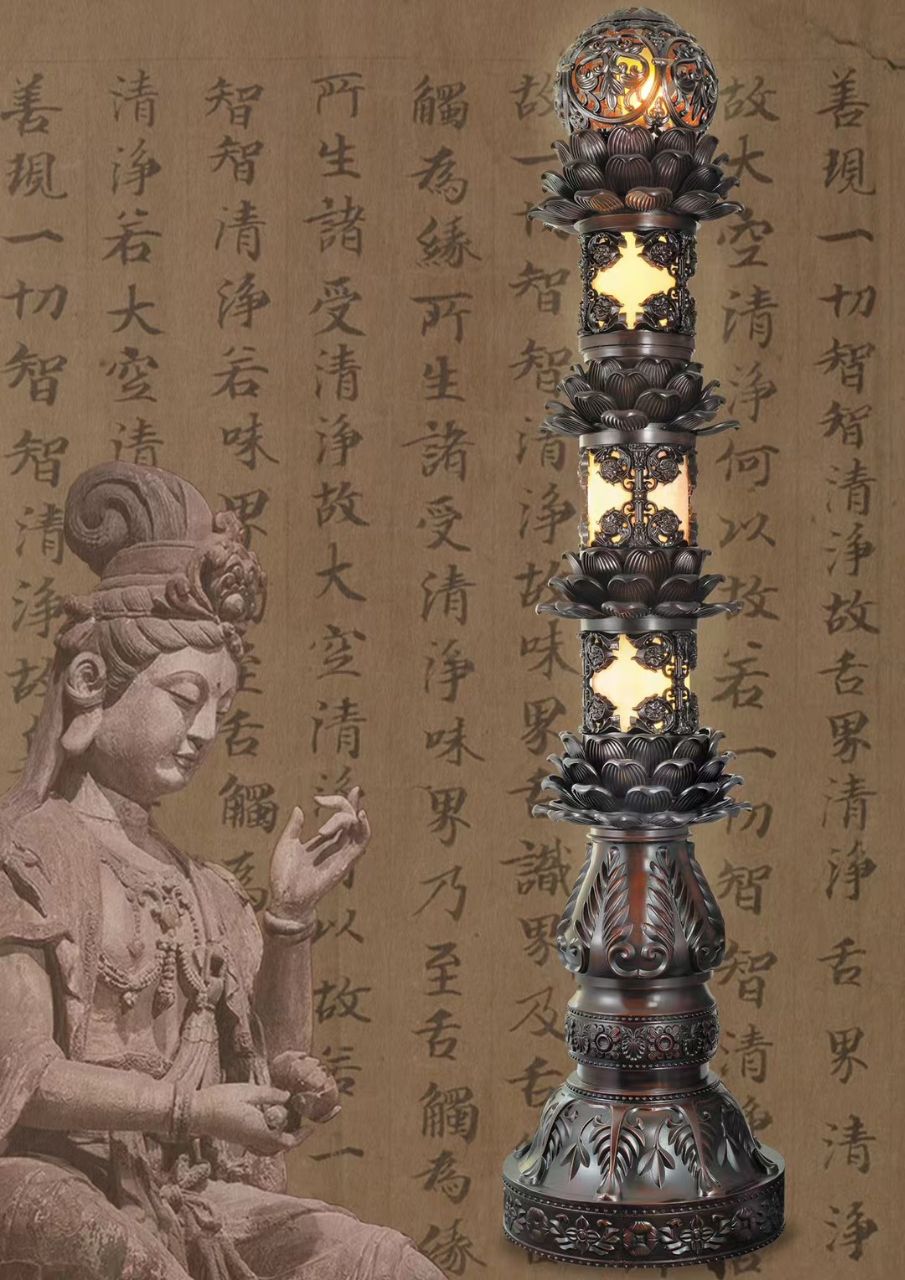 善現一切智智清淨故舌界清淨舌界清淨
故大空清淨何以故若一切智智清淨
故一切智智清淨故味界舌識界及舌
觸為緣所生諸受清淨味界乃至舌觸為緣
所生諸受清淨故大空清淨何以故若一
智智清淨若味界乃至舌觸為
清淨若大空清
善現一切智智清淨故